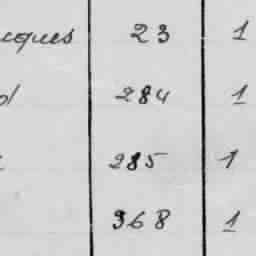 23 1
284 1
285 1
368 1